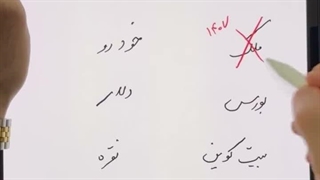 ۱۴۰۷
ملک خودرو
بورس دلار
بیت کوین نقره